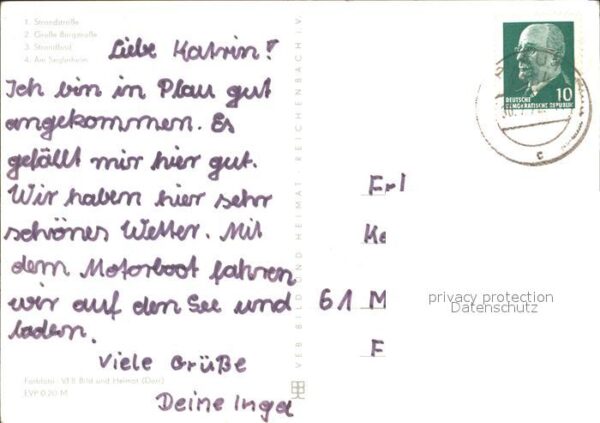 1. Strandstraße
2. Große Burgstraße
3. Strandbad
4. Am Seglerheim
Liebe Katrin!
Ich bin in Plau gut
angekommen. Es
gefällt mir hier gut.
Wir haben hier sehr
schönes Wetter. Mit
dem Motorboot fahren
wir auf den See und
baden.
Viele Grüße
Deine Inga
Farbfoto: VEB Bild und Heimat (Darr)
EVP 0,20 M
VEB BILD UND HEIMAT · REICHENBACH I. V.
10
DEUTSCHE
DEMOKRATISCHE REPUBLIK
c
Frl
Ke
61 M
F
privacy protection
Datenschutz